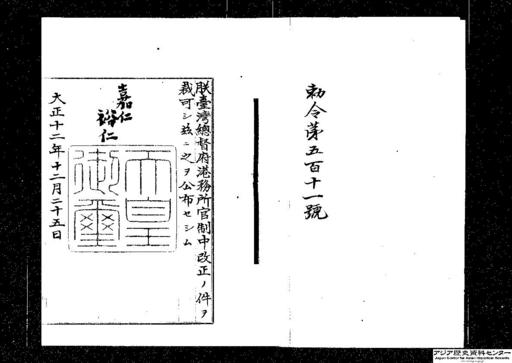 勅令第五百十一號
朕臺灣總督府港務所官制中改正ノ件ヲ
裁可シ玆ニ之ヲ公布セシム
嘉仁
裕仁
天皇
御璽
大正十二年十二月二十五日
アジア歴史資料センター
Japan Center for Asian Historical Records